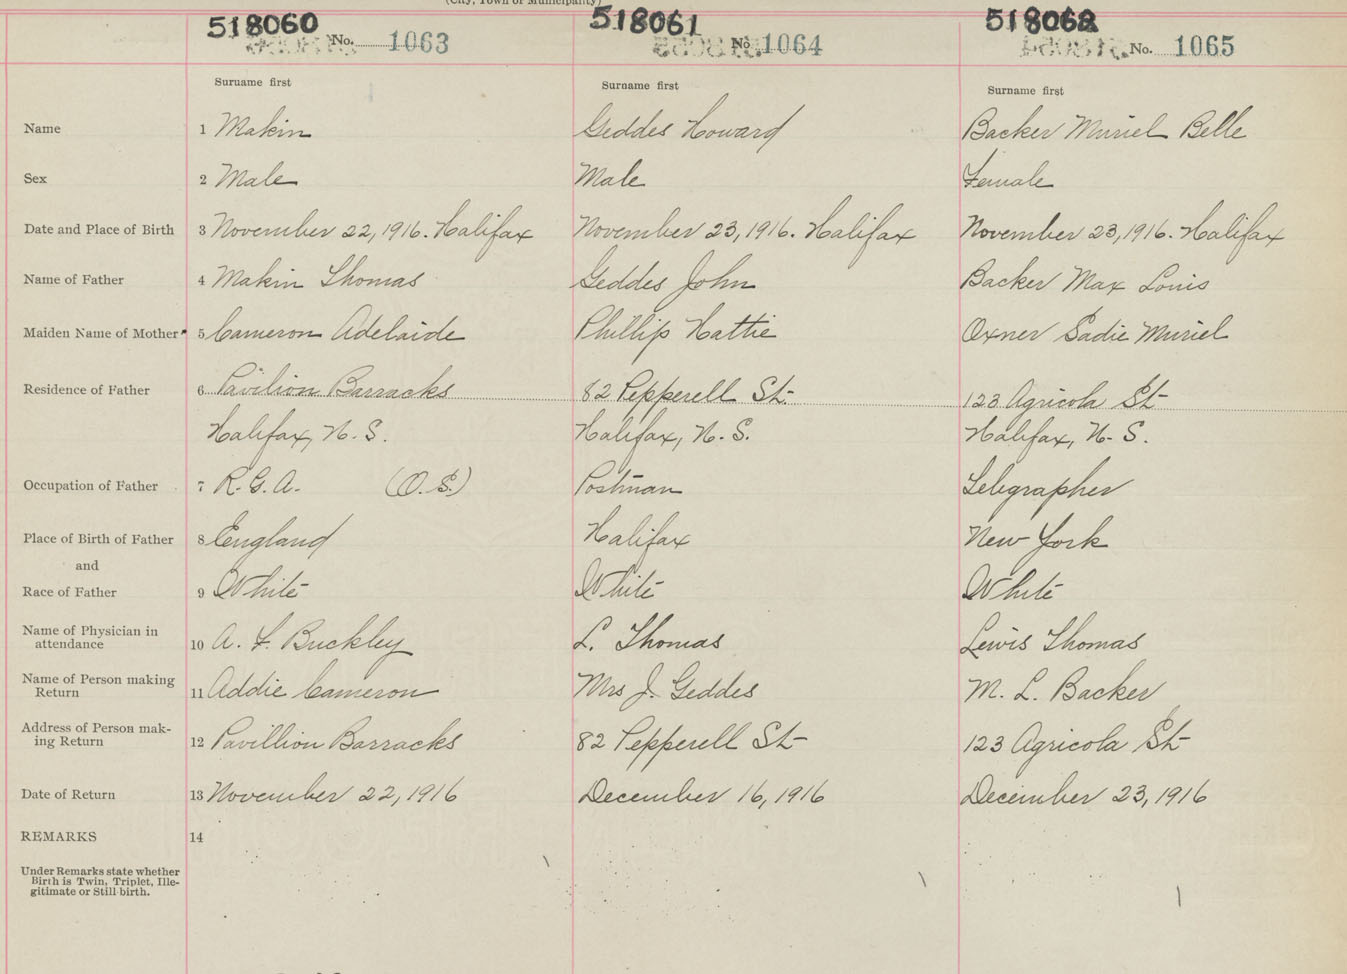 (City, Town or Municipality)
518060 No. 1063
518061 No 1064
518062 No. 1065
Suruame first
Surname first
Surname first
Name 1 Makin
Geddes Howard
Backer Muriel Belle
Sex 2 Male
Male
Female
Date and Place of Birth 3 November 22, 1916. Halifax
November 23, 1916. Halifax
November 23, 1916. Halifax
Name of Father 4 Makin Thomas
Geddes John
Backer Max Louis
Maiden Name of Mother 5 Cameron Adelaide
Phillip Hattie
Oxner Sadie Muriel
Residence of Father 6 Pavilion Barracks
82 Pepperell St.
123 Agricola St
Halifax, N. S.
Halifax, N. S.
Halifax, N. S.
Occupation of Father 7 R. G. A. (O. S.)
Postman
Telegrapher
Place of Birth of Father 8 England
Halifax
New York
and
Race of Father 9 White
White
White
Name of Physician in
attendance 10 A. F. Buckley
L. Thomas
Lewis Thomas
Name of Person making
Return 11 Addie Cameron
Mrs J. Geddes
M. L. Backer
Address of Person mak-
ing Return 12 Pavillion Barracks
82 Pepperell St
123 Agricola St
Date of Return 13 November 22, 1916
December 16, 1916
December 23, 1916
REMARKS 14
Under Remarks state whether
Birth is Twin, Triplet, Ille-
gitimate or Still birth.